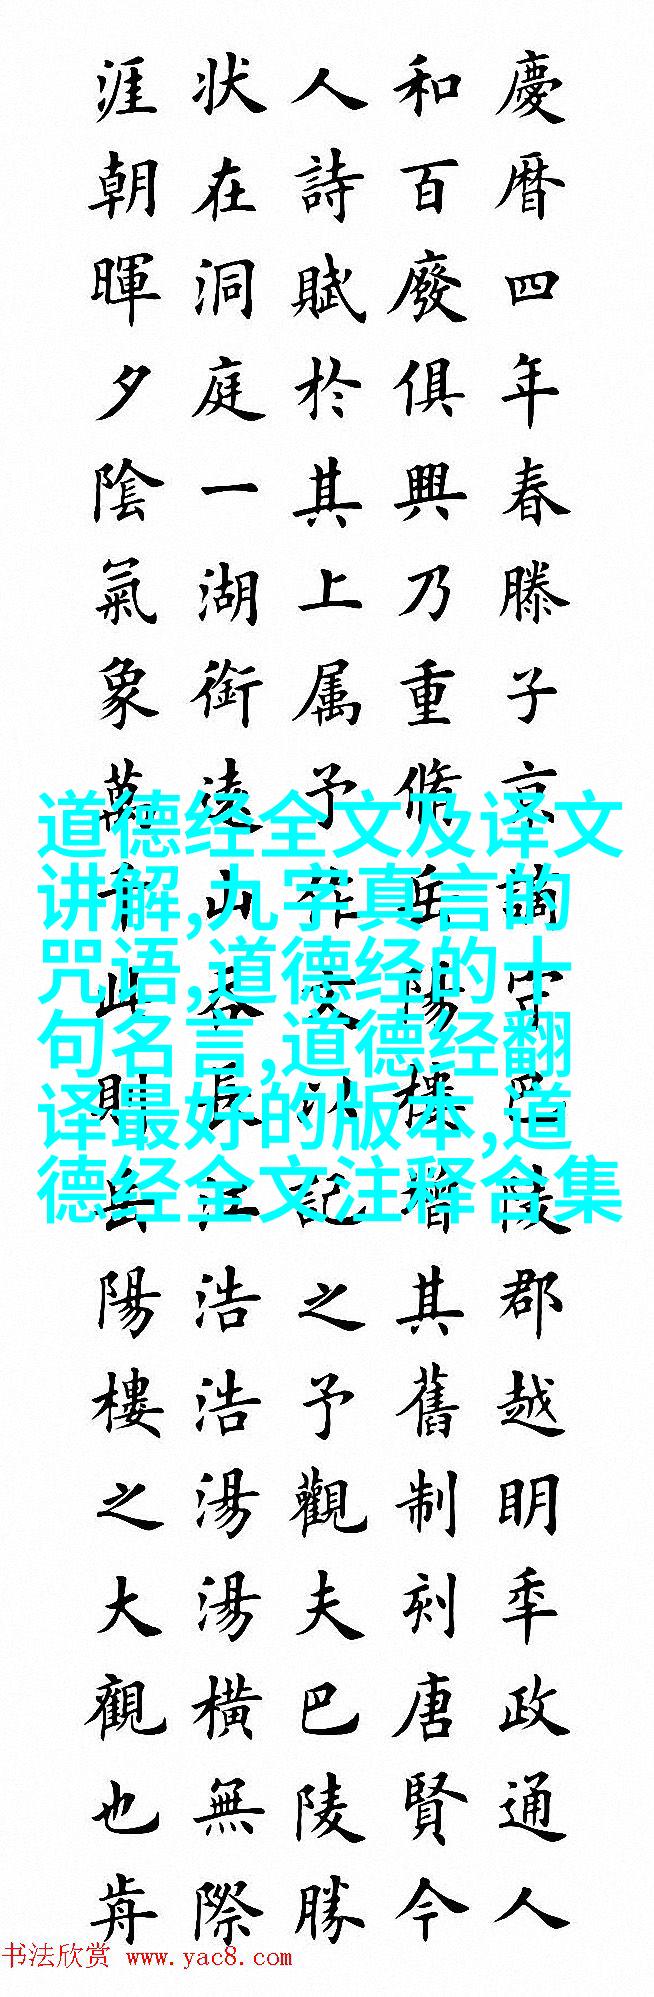 慶暦四年春滕子京謫守巴陵郡越明秊政通人
和百廢俱興乃重脩岳陽樓增其舊制刻唐賢今
人詩賦於其上属予作文以記之予觀夫巴陵勝
状在洞庭一湖銜遠山吞長江浩浩湯湯橫無際
涯朝暉夕陰氣象萬千此則岳陽樓之大觀也歬
道德经全文及译文
讲解,九字真言的
咒语,道德经的十
句名言,道德经翻
译最好的版本,道
德经全文注释合集
书法欣赏 www.yac8.com